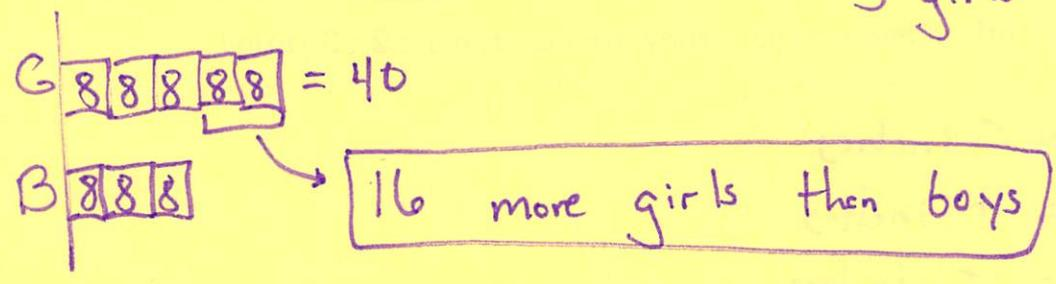 girls
G 8 8 8 8 8 = 40
B 8 8 8
16 more girls than boys